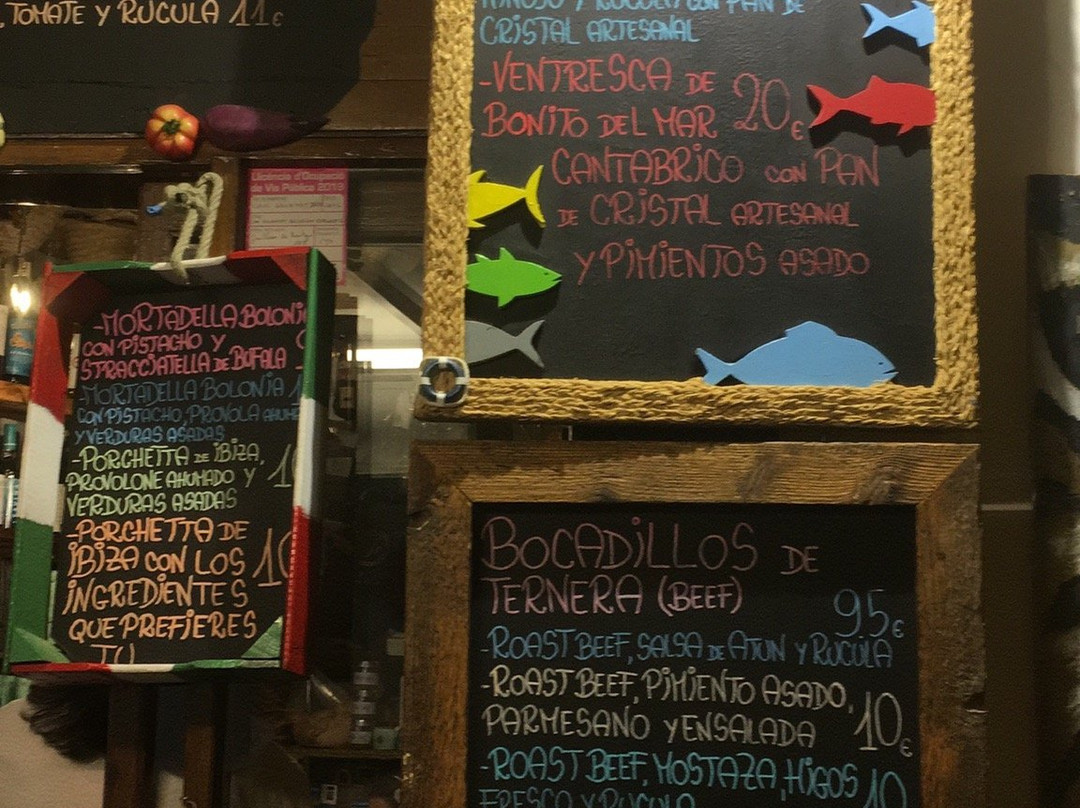 , TOMATE Y RUCULA 11€
CRISTAL ARTESANAL
-VENTRESCA DE
BONITO DEL MAR 20€
CANTABRICO CON PAN
DE CRISTAL ARTESANAL
Y PIMIENTOS ASADO
Llicència d'Ocupació
de Via Pública 2019
-MORTADELLA BOLONIA
CON PISTACHO Y
STRACCIATELLA DE BUFALA
-MORTADELLA BOLONIA
CON PISTACHO, PROVOLA AHUMA
Y VERDURAS ASADAS
-PORCHETTA DE IBIZA,
PROVOLONE AHUMADO Y
VERDURAS ASADAS
-PORCHETTA DE
IBIZA CON LOS 10
INGREDIENTES
QUE PREFIERES
TU
BOCADILLOS DE
TERNERA (BEEF)
95€
-ROAST BEEF, SALSA DE ATUN Y RUCULA
-ROAST BEEF, PIMIENTO ASADO,
PARMESANO Y ENSALADA 10€
-ROAST BEEF, MOSTAZA, HIGOS 10
FRESCO Y RUCULA